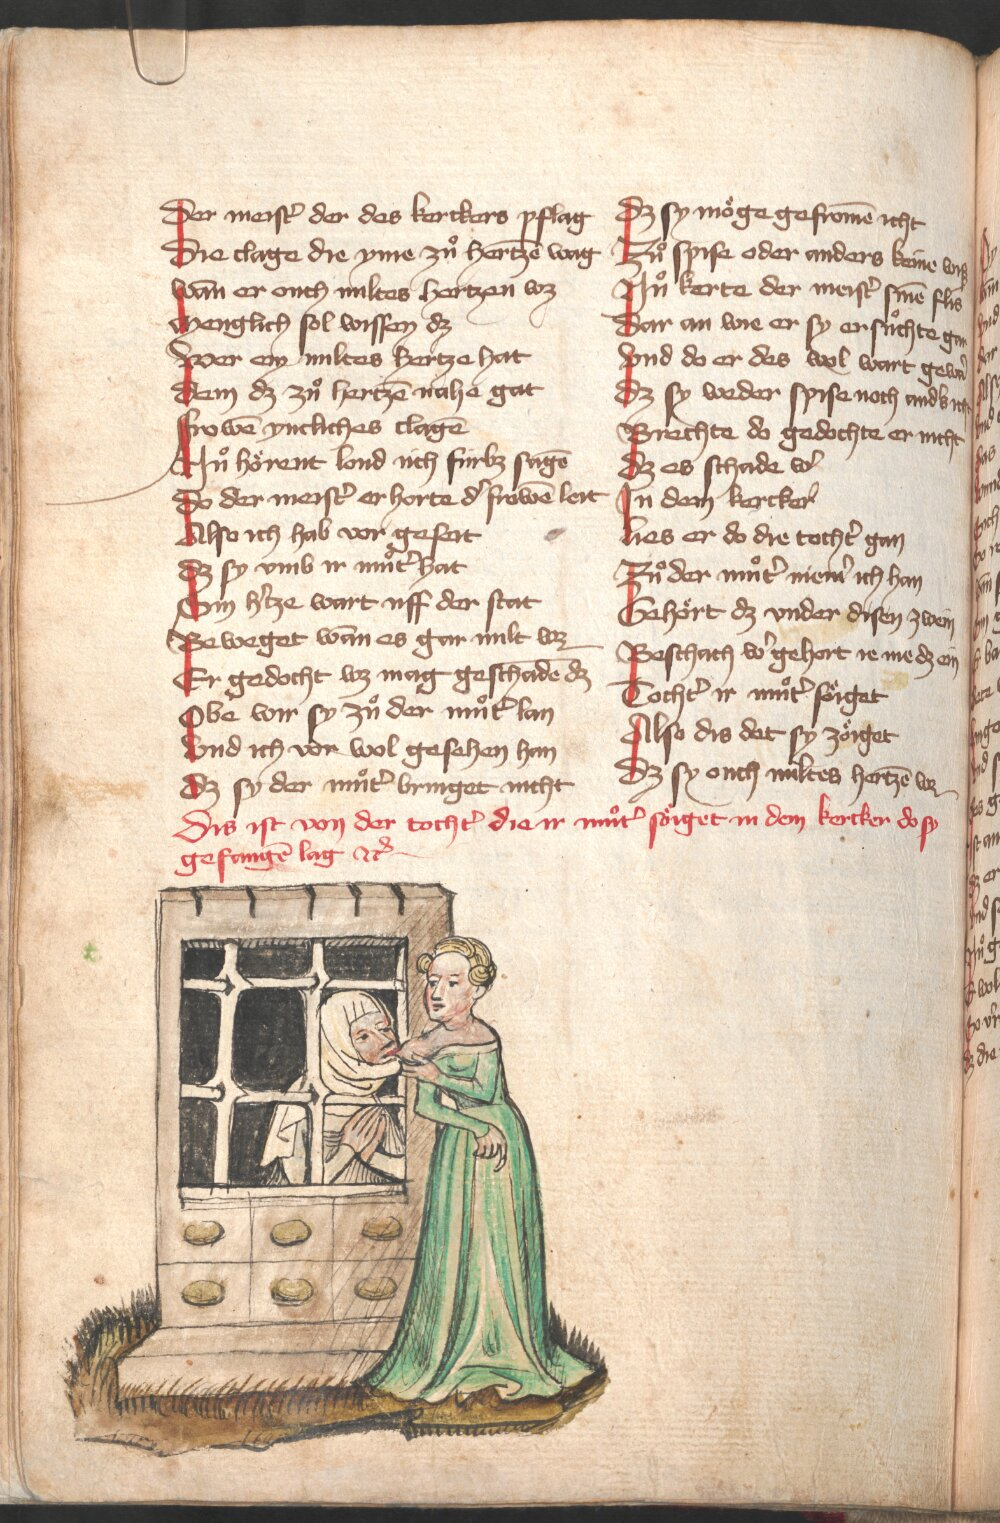 Der meist̉ der des kerckers pflag
Die clage die yme zů hertzē wag
wān er ouch miltes hertzen wz
menglich sol wissen dz
Wer ein miltes hertze hat
Dem dz zů hertzē nahe gat
frowē yncliches clagē
Nů hőrent lond üch fúrbz sagē
Do der meist̉ erhorte d̉ frowē leit
Also ich hab vor geseit
Dz sy vmb ir můt̉ bat
Sin h̉tze wart uff der stat
Beweget wān es gar milt wz
Er gedocht wz mag geschadē dz
Obe wir sy zů der můt̉ lan
Vnd ich vor wol gesehen han
Dz sy der můt̉ bringet nicht
Dz sy mőge gefromē icht
Zů spise oder anders keine wis
Nů kerte der meist̉ sinē flis
Dar an wie er sy ersůchte gar
Vnd do er des wol wart gewar
Dz sy weder spise noch anders icht
Brechte do gedochte er nicht
Dz es schade w̉
In dem kercker
lies er do die tocht̉ gan
Zů der můt̉ niem̉ ich han
Gehőrt dz vnder disen zwein
Beschach w̉ gehort ie me dz ein
Tocht̉ ir můt̉ sőiget
Also dis det sy zőiget
Dz sy ouch miltes hertzē wz
Dis ist von der tocht̉ die ir můt̉ sőiget in dem kercker do sy
gefangē lag ⁊c̉